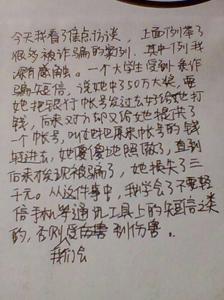 今天我看了焦点访谈，上面列举了
很多被诈骗的案例。其中一例我
深有感触。一个大学生受到来作
骗短信，说她中了50万大奖，需
她把银行帐号发过去好给她打
钱，后来对方却又给她提供了
一个帐号，叫她把原来帐号的钱
转进去，她傻傻地照做了，直到
后来才发现被骗了，她损失了三
千元。从这件事中，我学会了不要轻
信手机等通讯工具上的短信之类
的，否则 受到伤害。
我们会